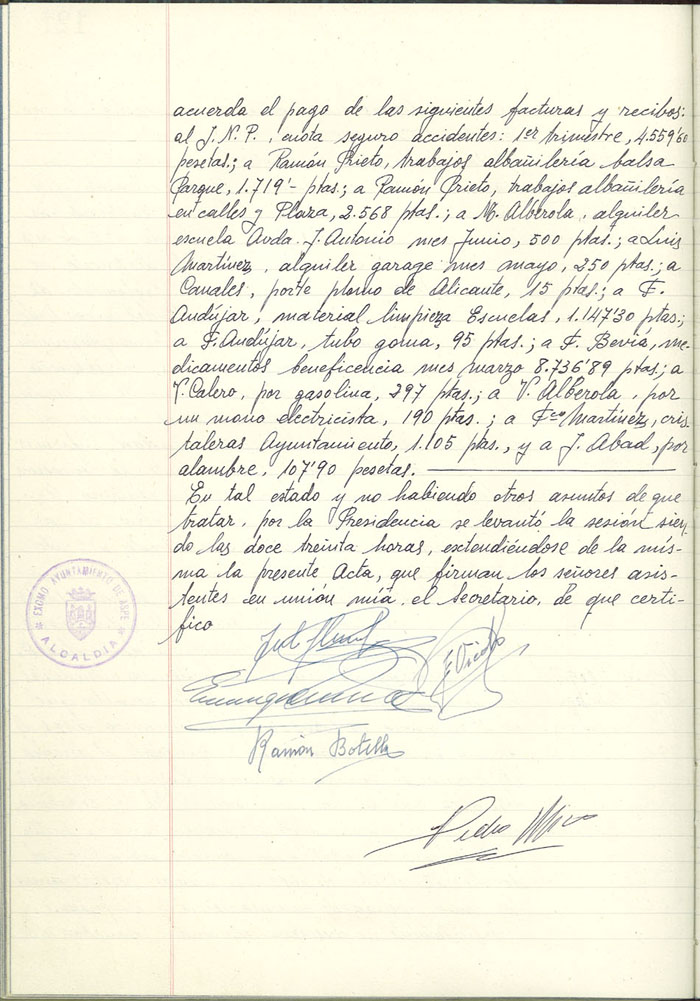 acuerda el pago de las siguientes facturas y recibos:
al I.N.P., cuota seguro accidentes: 1er trimestre, 4.559'60
pesetas; a Ramón Prieto, trabajos albañilería balsa
Parque, 1.719'- ptas.; a Ramón Prieto, trabajos albañilería
en calles y Plaza, 2.568 ptas.; a M. Alberola, alquiler
escuela Avda. J. Antonio mes Junio, 500 ptas.; a Luis
Martínez, alquiler garage mes mayo, 250 ptas.; a
Canales, porte plomo de Alicante, 15 ptas.; a F.
Andújar, material limpieza Escuelas, 1.147'30 ptas;
a F. Andújar, tubo goma, 95 ptas.; a F. Beviá, me-
dicamentos beneficencia mes marzo 8.736'89 ptas; a
V. Calero, por gasolina, 297 ptas.; a V. Alberola, por
un mono electricista, 190 ptas.; a Fco Martínez, cris-
taleras Ayuntamiento, 1.105 ptas., y a J. Abad, por
alambre, 107'90 pesetas.
En tal estado y no habiendo otros asuntos de que
tratar, por la Presidencia se levantó la sesión sien-
do las doce treinta horas, extendiéndose de la mis-
ma la presente Acta, que firman los señores asis-
tentes en unión mía, el Secretario, de que certi-
fico
EXCMO AYUNTAMIENTO DE ASPE
ALCALDIA
Ramón Botella
Pedro